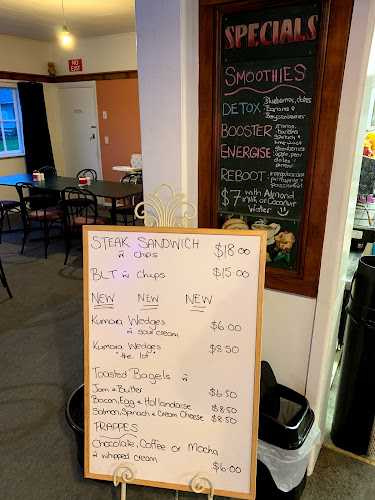 NO
EXIT
SPECIALS
SMOOTHIES
DETOX
Banana &
BOOSTER
ENERGISE
REBOOT
$7 with Almond
milk or Coconut
Water
STEAK SANDWICH $18.00
w̄ chips
BLT w̄ chips $15.00
NEW NEW NEW
Kumara Wedges $6.00
w̄ sour cream
Kumara Wedges $8.50
"the lot"
Toasted Bagels w̄
Jam & Butter $6.50
Bacon, Egg & Hollandaise $8.50
Salmon, Spinach & Cream Cheese $8.50
FRAPPES
Chocolate, Coffee or Mocha
w̄ whipped cream $6.00